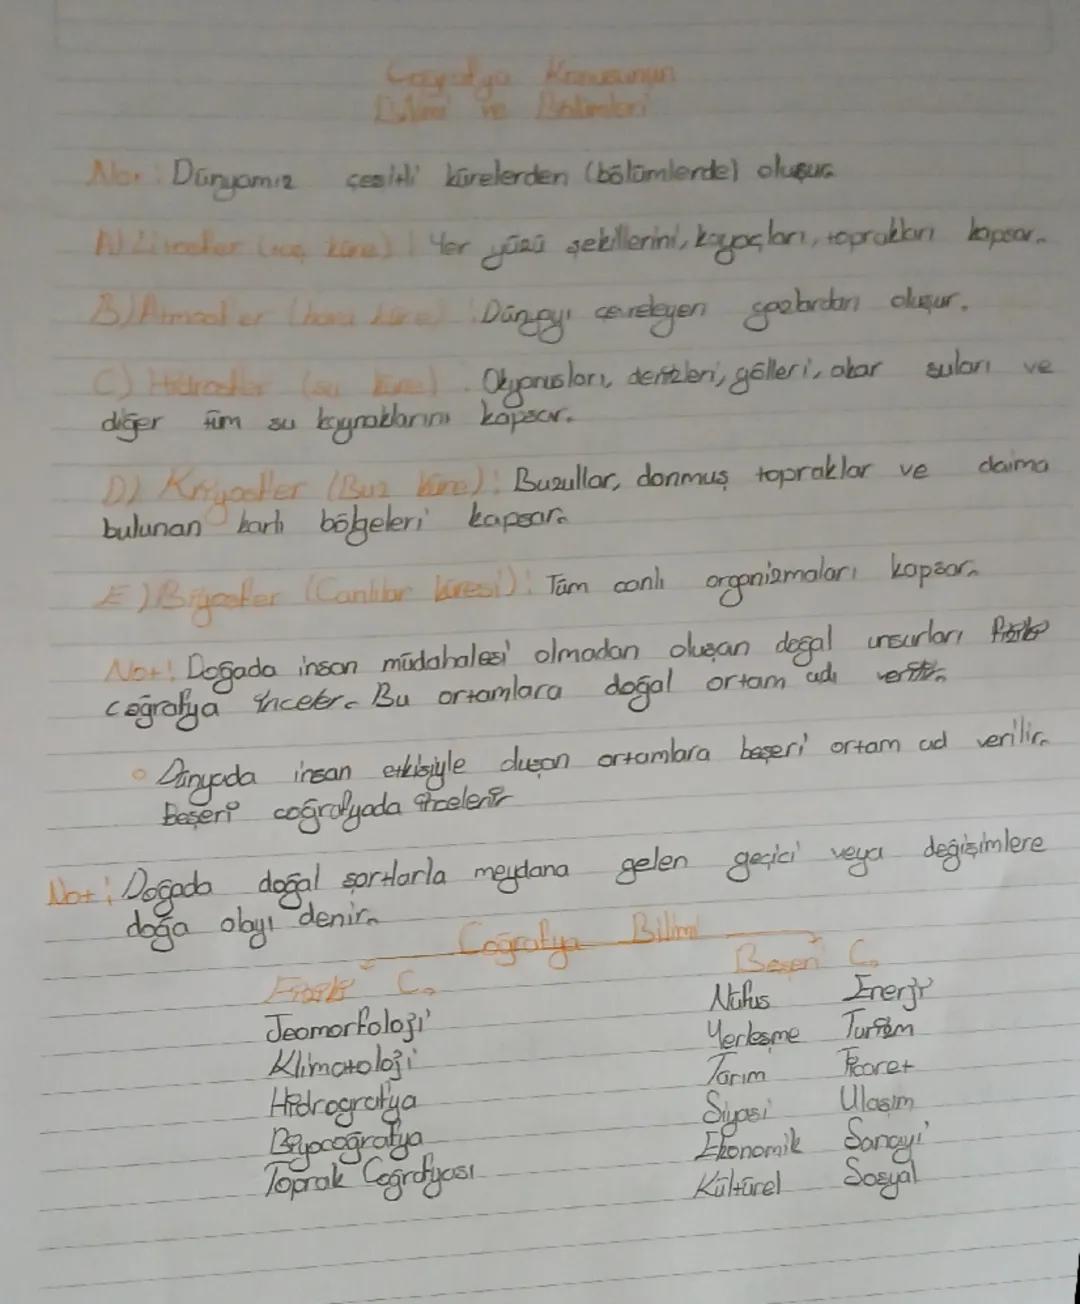 Coğrafya Konusunun
Bilimi ve Bölümleri
Not: Dünyamız çeşitli kürelerden (bölümlerde) oluşur.
A) Litosfer (taş küre): Yer yüzü şekillerini, kayaçları, toprakları kapsar.
B) Atmosfer (hava küre): Dünyayı çevreleyen gazlardan oluşur.
C) Hidrosfer (su küre): Okyanusları, denizleri, gölleri, akar suları ve
diğer tüm su kaynaklarını kapsar.
D) Kriyosfer (Buz küre): Buzullar, donmuş topraklar ve daima
bulunan karlı bölgeleri kapsar.
E) Biyosfer (Canlılar küresi): Tüm canlı organizmaları kapsar.
Not: Doğada insan müdahalesi olmadan oluşan doğal unsurları fiziki
coğrafya inceler. Bu ortamlara doğal ortam adı verilir.
Dünyada insan etkisiyle oluşan ortamlara beşeri ortam ad verilir.
Beşeri coğrafyada incelenir
Not: Doğada doğal şartlarla meydana gelen geçici veya değişimlere
doğa olayı denir.
Coğrafya Bilimi
Fiziki C. Beşeri C.
Jeomorfoloji Nüfus Enerji
Klimatoloji Yerleşme Turizm
Hidrografya Tarım Ticaret
Biyocoğrafya Siyasi Ulaşım
Toprak Coğrafyası Ekonomik Sanayi
Kültürel Sosyal